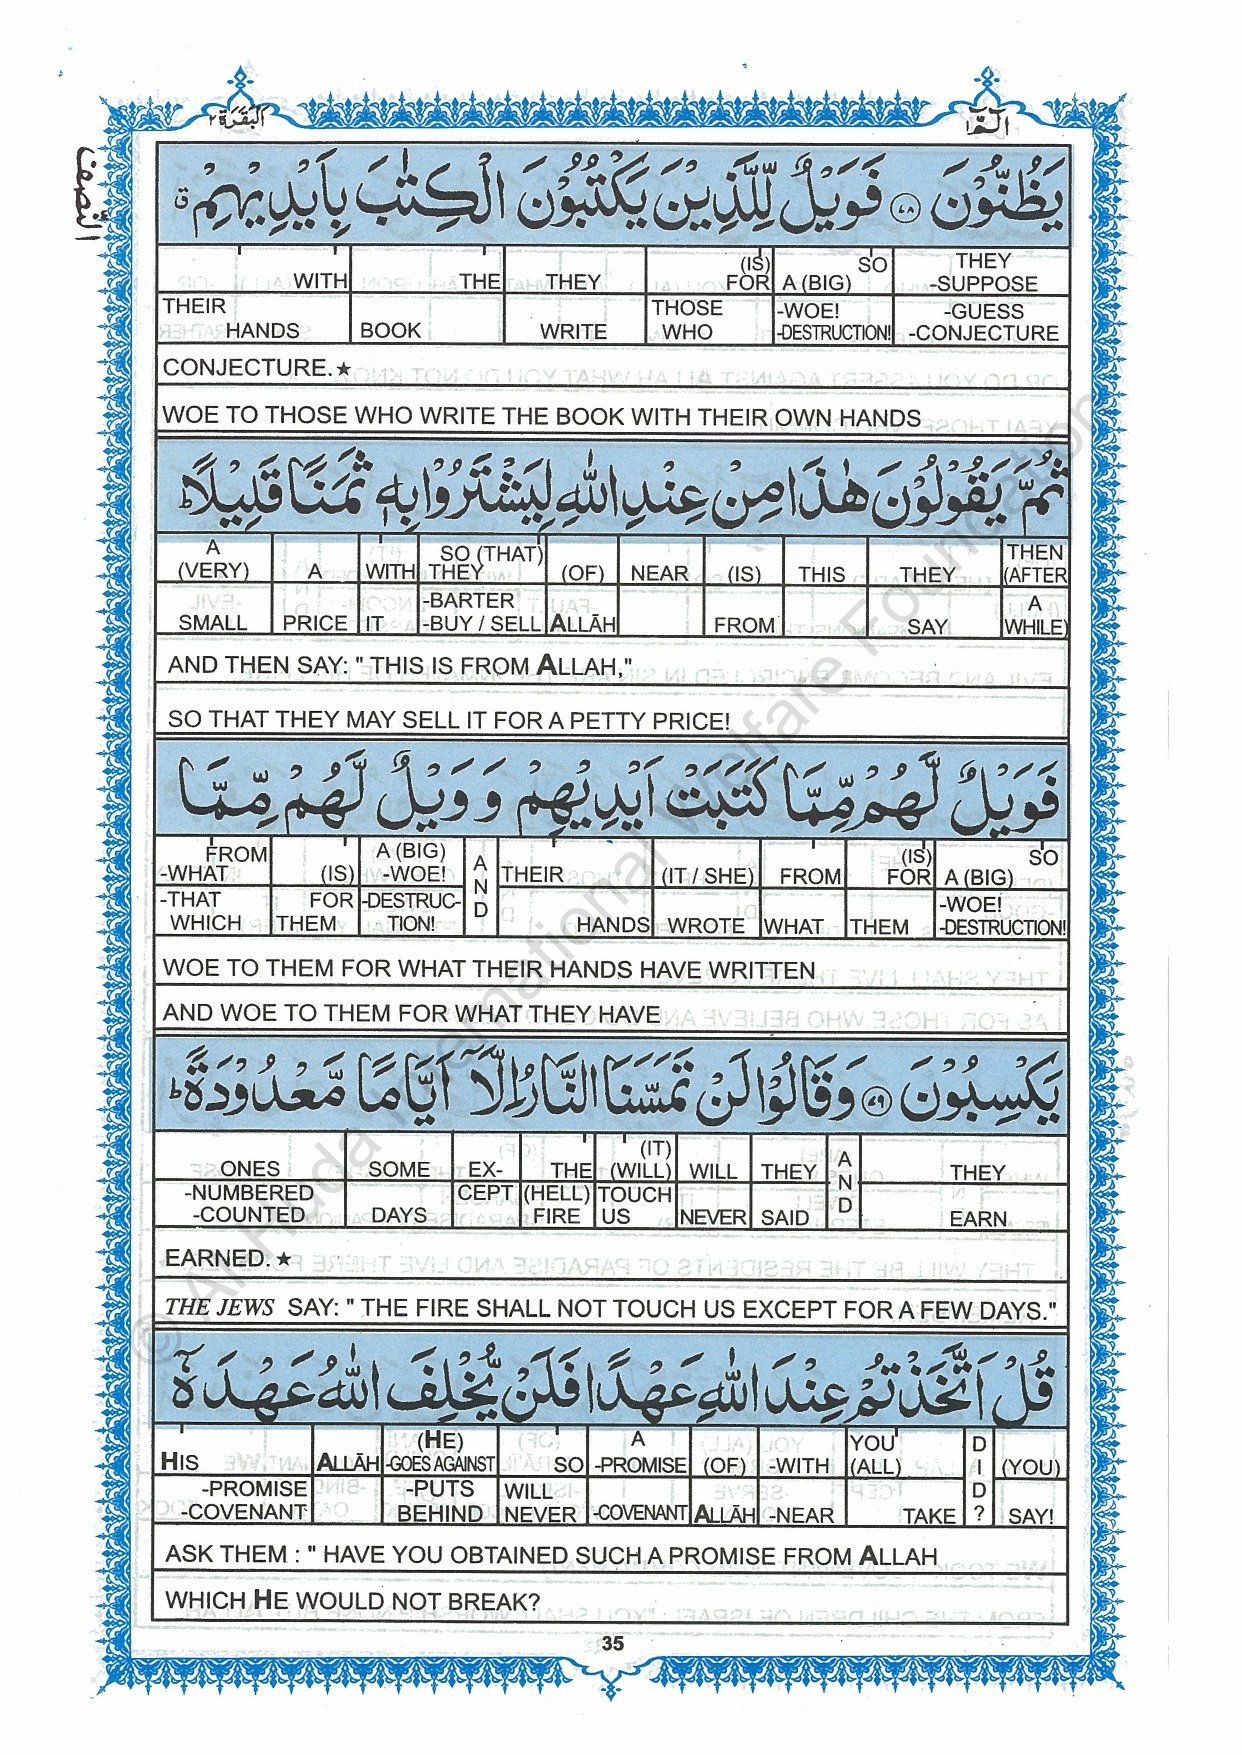 البقرة ٢
الٓمّٓ ١
النصف
يَظُنُّوْنَ ﴿٧٨﴾ فَوَيْلٌ لِّلَّذِيْنَ يَكْتُبُوْنَ الْكِتٰبَ بِاَيْدِيْهِمْ ق
WITH THE THEY (IS) FOR SO A (BIG) THEY -SUPPOSE
THEIR HANDS BOOK WRITE THOSE WHO -WOE! -DESTRUCTION! -GUESS -CONJECTURE
CONJECTURE.★
WOE TO THOSE WHO WRITE THE BOOK WITH THEIR OWN HANDS
ثُمَّ يَقُوْلُوْنَ هٰذَا مِنْ عِنْدِ اللّٰهِ لِيَشْتَرُوْا بِهٖ ثَمَنًا قَلِيْلًا ط
A (VERY) A WITH SO (THAT) THEY (OF) NEAR (IS) THIS THEY THEN (AFTER
SMALL PRICE IT -BARTER -BUY / SELL ALLĀH FROM SAY A WHILE)
AND THEN SAY: " THIS IS FROM ALLAH,"
SO THAT THEY MAY SELL IT FOR A PETTY PRICE!
فَوَيْلٌ لَّهُمْ مِّمَّا كَتَبَتْ اَيْدِيْهِمْ وَ وَيْلٌ لَّهُمْ مِّمَّا
FROM -WHAT (IS) A (BIG) -WOE! AND THEIR (IT / SHE) FROM (IS) FOR SO A (BIG)
-THAT WHICH FOR THEM -DESTRUC- TION! HANDS WROTE WHAT THEM -WOE! -DESTRUCTION!
WOE TO THEM FOR WHAT THEIR HANDS HAVE WRITTEN
AND WOE TO THEM FOR WHAT THEY HAVE
يَكْسِبُوْنَ ﴿٧٩﴾ وَقَالُوْا لَنْ تَمَسَّنَا النَّارُ اِلَّآ اَيَّامًا مَّعْدُوْدَةً ط
ONES SOME EX- THE (IT) (WILL) WILL THEY AND THEY
-NUMBERED -COUNTED DAYS CEPT (HELL) FIRE TOUCH US NEVER SAID EARN
EARNED.★
THE JEWS SAY: " THE FIRE SHALL NOT TOUCH US EXCEPT FOR A FEW DAYS."
قُلْ اَتَّخَذْتُمْ عِنْدَ اللّٰهِ عَهْدًا فَلَنْ يُّخْلِفَ اللّٰهُ عَهْدَهٗٓ
HIS ALLĀH (HE) -GOES AGAINST SO A -PROMISE (OF) -WITH YOU (ALL) DID? (YOU)
-PROMISE -COVENANT -PUTS BEHIND WILL NEVER -COVENANT ALLĀH -NEAR TAKE SAY!
ASK THEM : " HAVE YOU OBTAINED SUCH A PROMISE FROM ALLAH
WHICH HE WOULD NOT BREAK?
35
© Al-Huda International Welfare Foundation